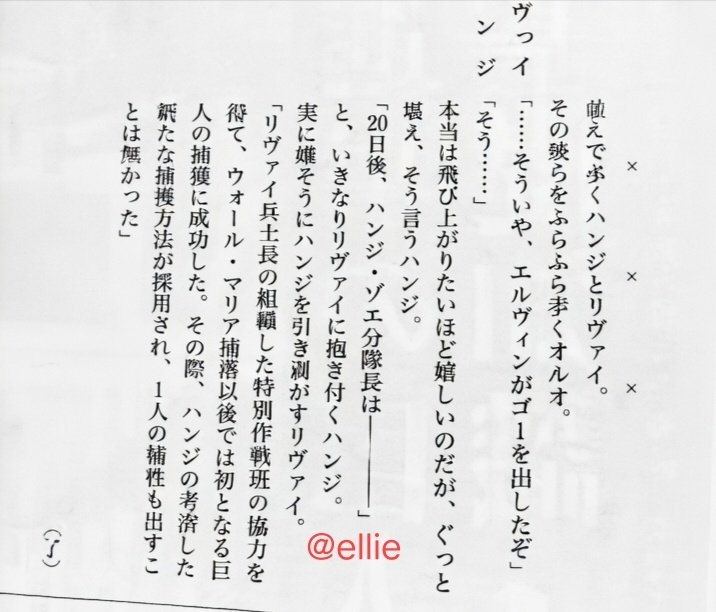 × × ×
えで歩くハンジとリヴァイ。
その後らをふらふら歩くオルオ。
ヴァイ「……そういや、エルヴィンがゴーを出したぞ」
ンジ「そう……」
本当は飛び上がりたいほど嬉しいのだが、ぐっと
堪え、そう言うハンジ。
「20日後、ハンジ・ゾエ分隊長は――――」
と、いきなりリヴァイに抱き付くハンジ。
実に嫌そうにハンジを引き剥がすリヴァイ。
「リヴァイ兵士長の組織した特別作戦班の協力を
得て、ウォール・マリア陥落以後では初となる巨
人の捕獲に成功した。その際、ハンジの考案した
新たな捕獲方法が採用され、1人の犠牲も出すこ
とは無かった」
(了)
@ellie